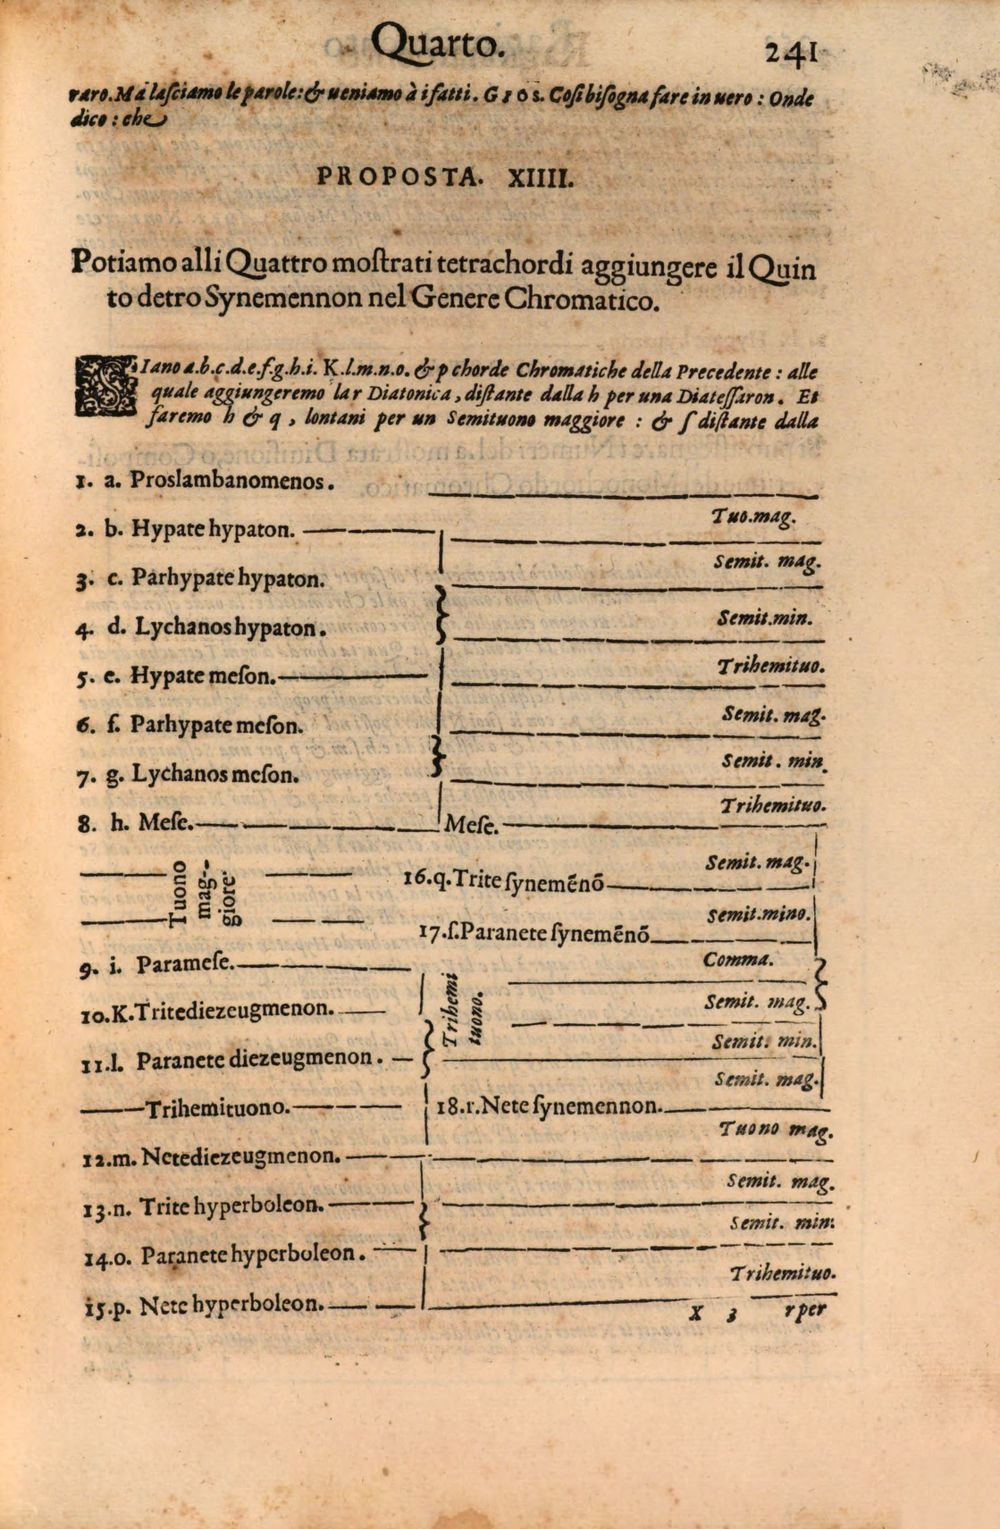 Quarto. 241
raro. Ma lasciamo le parole: & ueniamo à i fatti. GIOS. Cosi bisogna fare in uero: Onde
dico: che
PROPOSTA. XIIII.
Potiamo alli Quattro mostrati tetrachordi aggiungere il Quin
to detro Synemennon nel Genere Chromatico.
SIano a.b.c.d.e.f.g.h.i. K.l.m.n.o. & p chorde Chromatiche della Precedente: alle
quale aggiungeremo la r Diatonica, distante dalla h per una Diatessaron. Et
faremo h & q, lontani per un Semituono maggiore: & s distante dalla
1. a. Proslambanomenos.
Tuo.mag.
2. b. Hypate hypaton.
Semit. mag.
3. c. Parhypate hypaton.
Semit.min.
4. d. Lychanos hypaton.
Trihemituo.
5. e. Hypate meson.
Semit. mag.
6. f. Parhypate meson.
Semit. min.
7. g. Lychanos meson.
Trihemituo.
8. h. Mese. Mese.
Semit. mag.
Tuono
mag-
giore
16.q.Trite synemēnō
Semit.mino.
17.s.Paranete synemēnō
Comma.
9. i. Paramese.
Trihemi
tuono.
Semit. mag.
10.K.Trite diezeugmenon.
Semit. min.
11.l. Paranete diezeugmenon.
Semit. mag.
Trihemituono. 18.r.Nete synemennon.
Tuono mag.
12.m. Nete diezeugmenon.
Semit. mag.
13.n. Trite hyperboleon.
Semit. min.
14.o. Paranete hyperboleon.
Trihemituo.
15.p. Nete hyperboleon.
X 3 r per